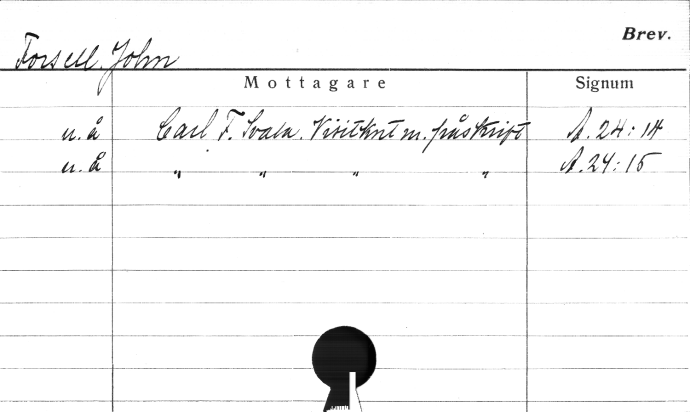 Brev.
Forsell, John
Mottagare Signum
u. å Carl F. Svala. Visitkrt m. påskrift A. 24:14
u. å " " " " A. 24:15